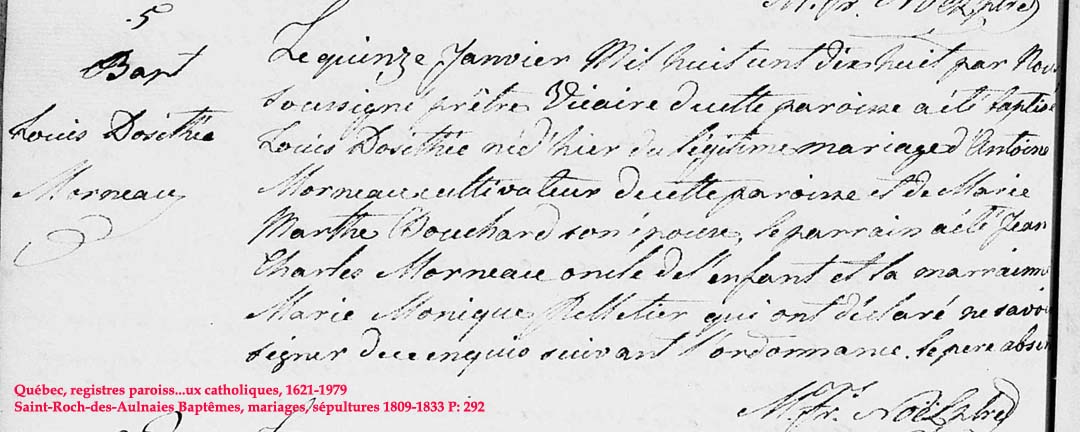 M. Fr. Noël ptre
5
Bapt
Louis Dosithée
Morneau
Le quinze Janvier Mil huit cent dix huit par Nous
soussigné prêtre Vicaire de cette paroisse a été baptisé
Louis Dosithée né d'hier du légitime mariage d'Antoine
Morneau cultivateur de cette paroisse et de Marie
Marthe Bouchard son épouse, le parrain a été Jean
Charles Morneau oncle de l'enfant et la marraine
Marie Monique Pelletier qui ont déclaré ne savoir
signer de ce enquis suivant l'ordonnance. le pere absent
M. Fr. Noël ptre
Québec, registres paroiss...ux catholiques, 1621-1979
Saint-Roch-des-Aulnaies Baptêmes, mariages, sépultures 1809-1833 P: 292